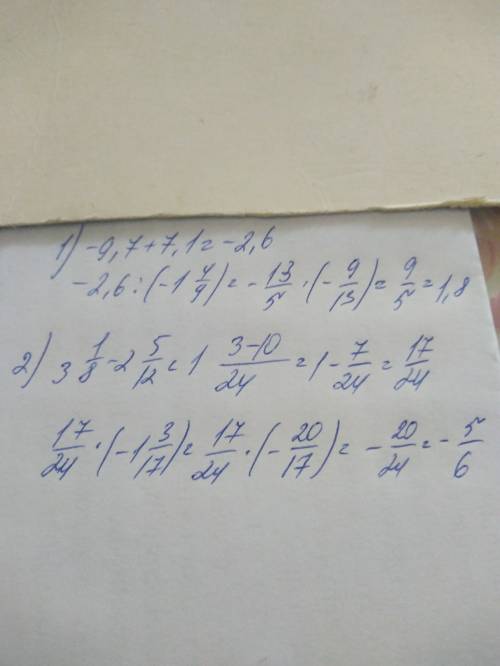 1) -9,7+7,1=-2,6
-2,6:(-1 4/9)=-13/5·(-9/13)=9/5=1,8
2) 3 1/8-2 5/12=1 3-10/24=1-7/24=17/24
17/24·(-1 3/17)=17/24·(-20/17)=-20/24=-5/6